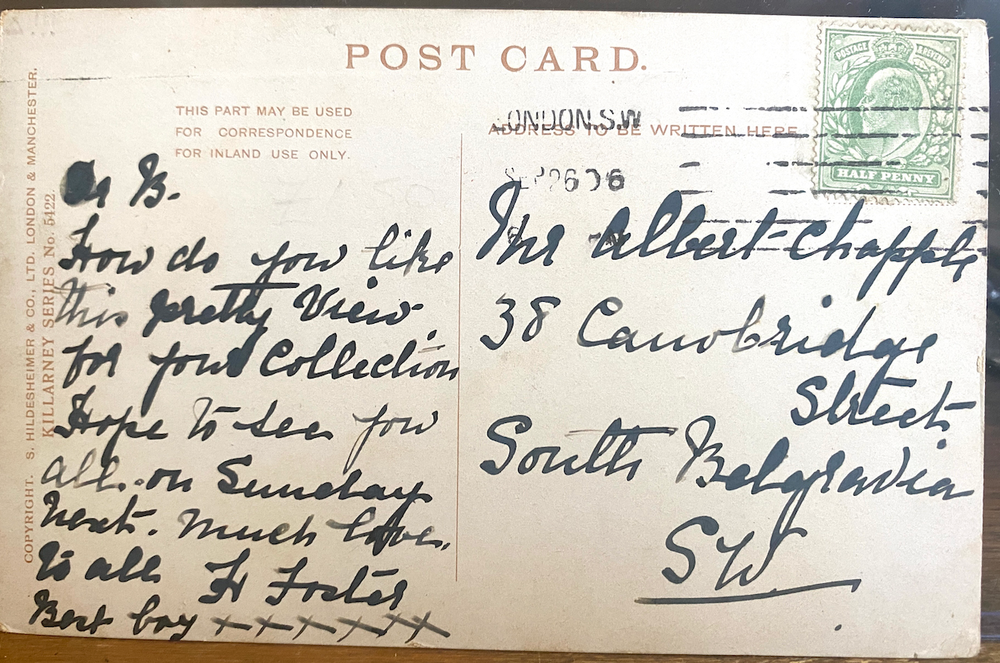 POST CARD.
THIS PART MAY BE USED
FOR CORRESPONDENCE
FOR INLAND USE ONLY.
ADDRESS TO BE WRITTEN HERE
LONDON.S.W
SEP 26 06
POSTAGE & REVENUE
HALF PENNY
COPYRIGHT. S. HILDESHEIMER & CO., LTD. LONDON & MANCHESTER.
KILLARNEY SERIES No. 5422.
B.
How do you like
this pretty View
for your Collection
Hope to see you
all on Sunday
next. Much love
to all H Foster
Bert boy xxxxxx
Mr Albert Chapple
38 Cambridge
Street
South Belgravia
SW